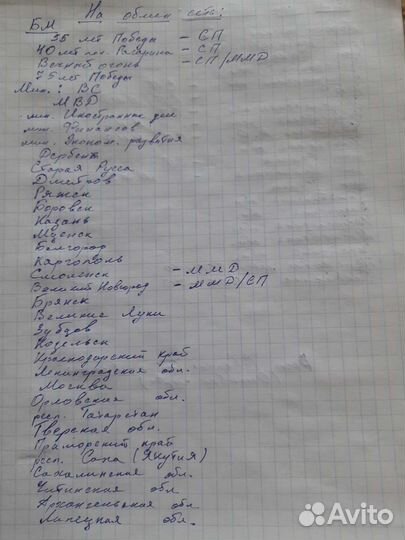 На обмен есть:
БМ
35 лет Победы - СП
40 лет пол. Гагарина - СП
Вечный огонь - СП/ММД
75 лет Победы
Мин.: ВС
МВД
мин. Иностранных дел
мин. Финансов
мин. Эконом. развития
Дербент
Старая Русса
Дмитров
Ряжск
Боровск
Казань
Мценск
Белгород
Каргополь
Смоленск - ММД
Великий Новгород - ММД/СП
Брянск
Великие Луки
Зубцов
Козельск
Краснодарский край
Ленинградская обл.
Москва
Орловская обл.
респ. Татарстан
Тверская обл.
Приморский край
респ. Саха (Якутия)
Сахалинская обл.
Читинская обл
Архангельская обл
Липецкая обл.
Avito